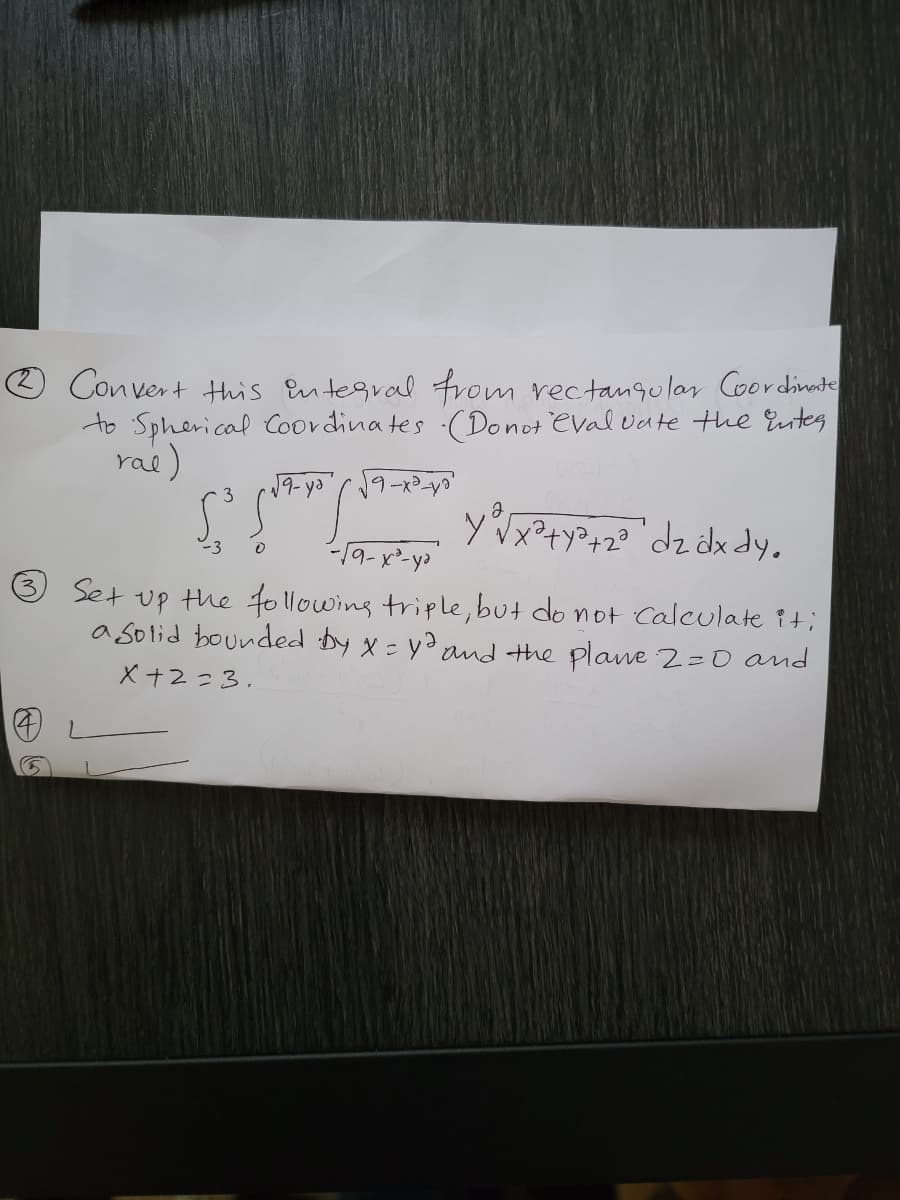 ② Convert this integral from rectangular Coordinate
to Spherical Coordinates. (Do not evaluate the integ
ral)
∫₋₃³ ∫₀^√(9-y²) ∫_{-√(9-x²-y²)}^{√(9-x²-y²)} y²√(x²+y²+z²) dz dx dy.
③ Set up the following triple, but do not calculate it;
a solid bounded by x = y² and the plane z=0 and
x+z=3.
④
⑤